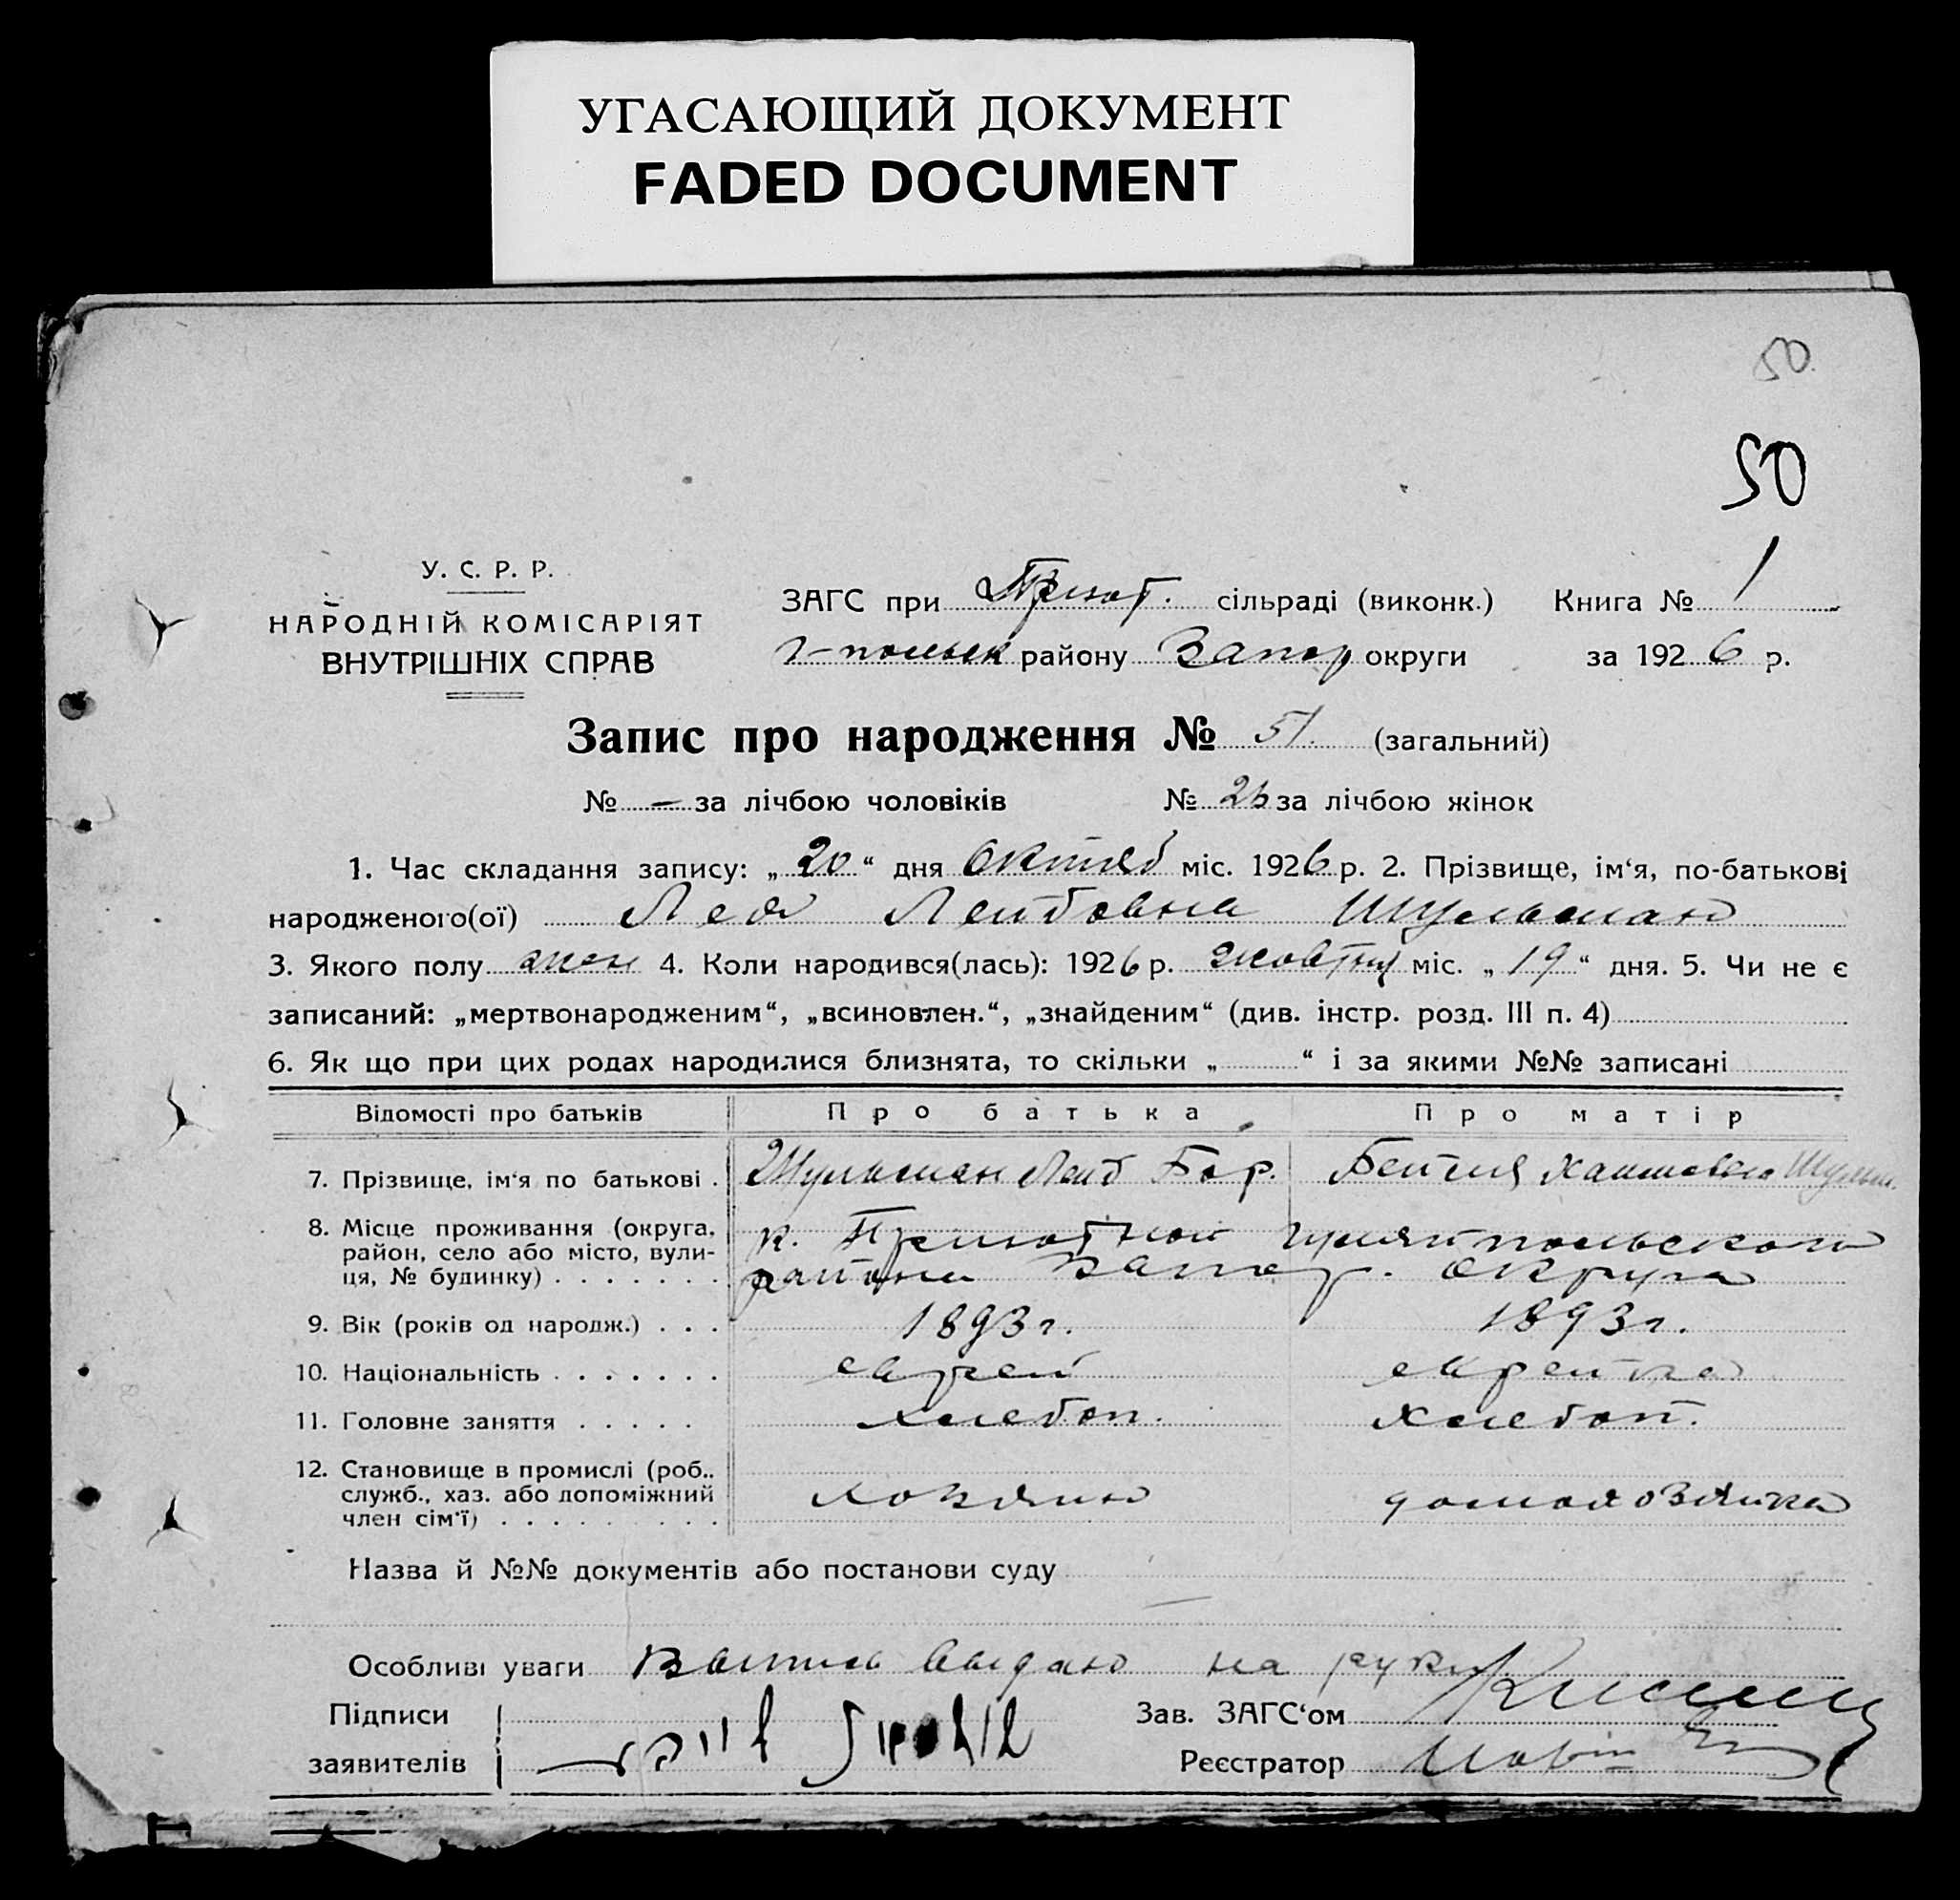 УГАСАЮЩИЙ ДОКУМЕНТ
FADED DOCUMENT
50
50
У. С. Р. Р.
НАРОДНІЙ КОМІСАРІЯТ
ВНУТРІШНІХ СПРАВ
ЗАГС при Приют. сільраді (виконк.) Книга № 1
г-польск району Запор округи за 1926 р.
Запис про народження № 51. (загальний)
№ — за лічбою чоловіків № 25 за лічбою жінок
1. Час складання запису: „20“ дня Октяб міс. 1926 р. 2. Прізвище, ім‘я, по-батькові
народженого(ої) Лея Лейбовна Шульман
3. Якого полу жен 4. Коли народився(лась): 1926 р. жовтня міс. „19“ дня. 5. Чи не є
записаний: „мертвонародженим“, „всиновлен.“, „знайденим“ (див. інстр. розд. III п. 4)
6. Як що при цих родах народилися близнята, то скільки „ “ і за якими №№ записані
Відомості про батьків Про батька Про матір
7. Прізвище, ім‘я по батькові . Шульман Лейб Бор. Бейля Хаимовна Шульм.
8. Місце проживання (округа, район, село або місто, вулиця, № будинку) . . . . . . . к. Приютной Гуляйпольского
района Запор. округа
9. Вік (років од народж.) . . . 1893 г. 1893 г.
10. Національність . . . . . . . еврей еврейка
11. Головне заняття . . . . . хлебоп. хлебоп.
12. Становище в промислі (роб., служб., хаз. або допоміжний член сім‘ї) . . . . . . . . . хозяин домохозяйка
Назва й №№ документів або постанови суду
Особливі уваги выдано на руки
Підписи
заявителів
Зав. ЗАГС‘ом
Реєстратор